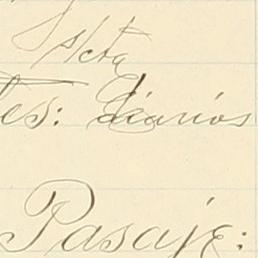 s/cta
tes: diarios
Pasaje: